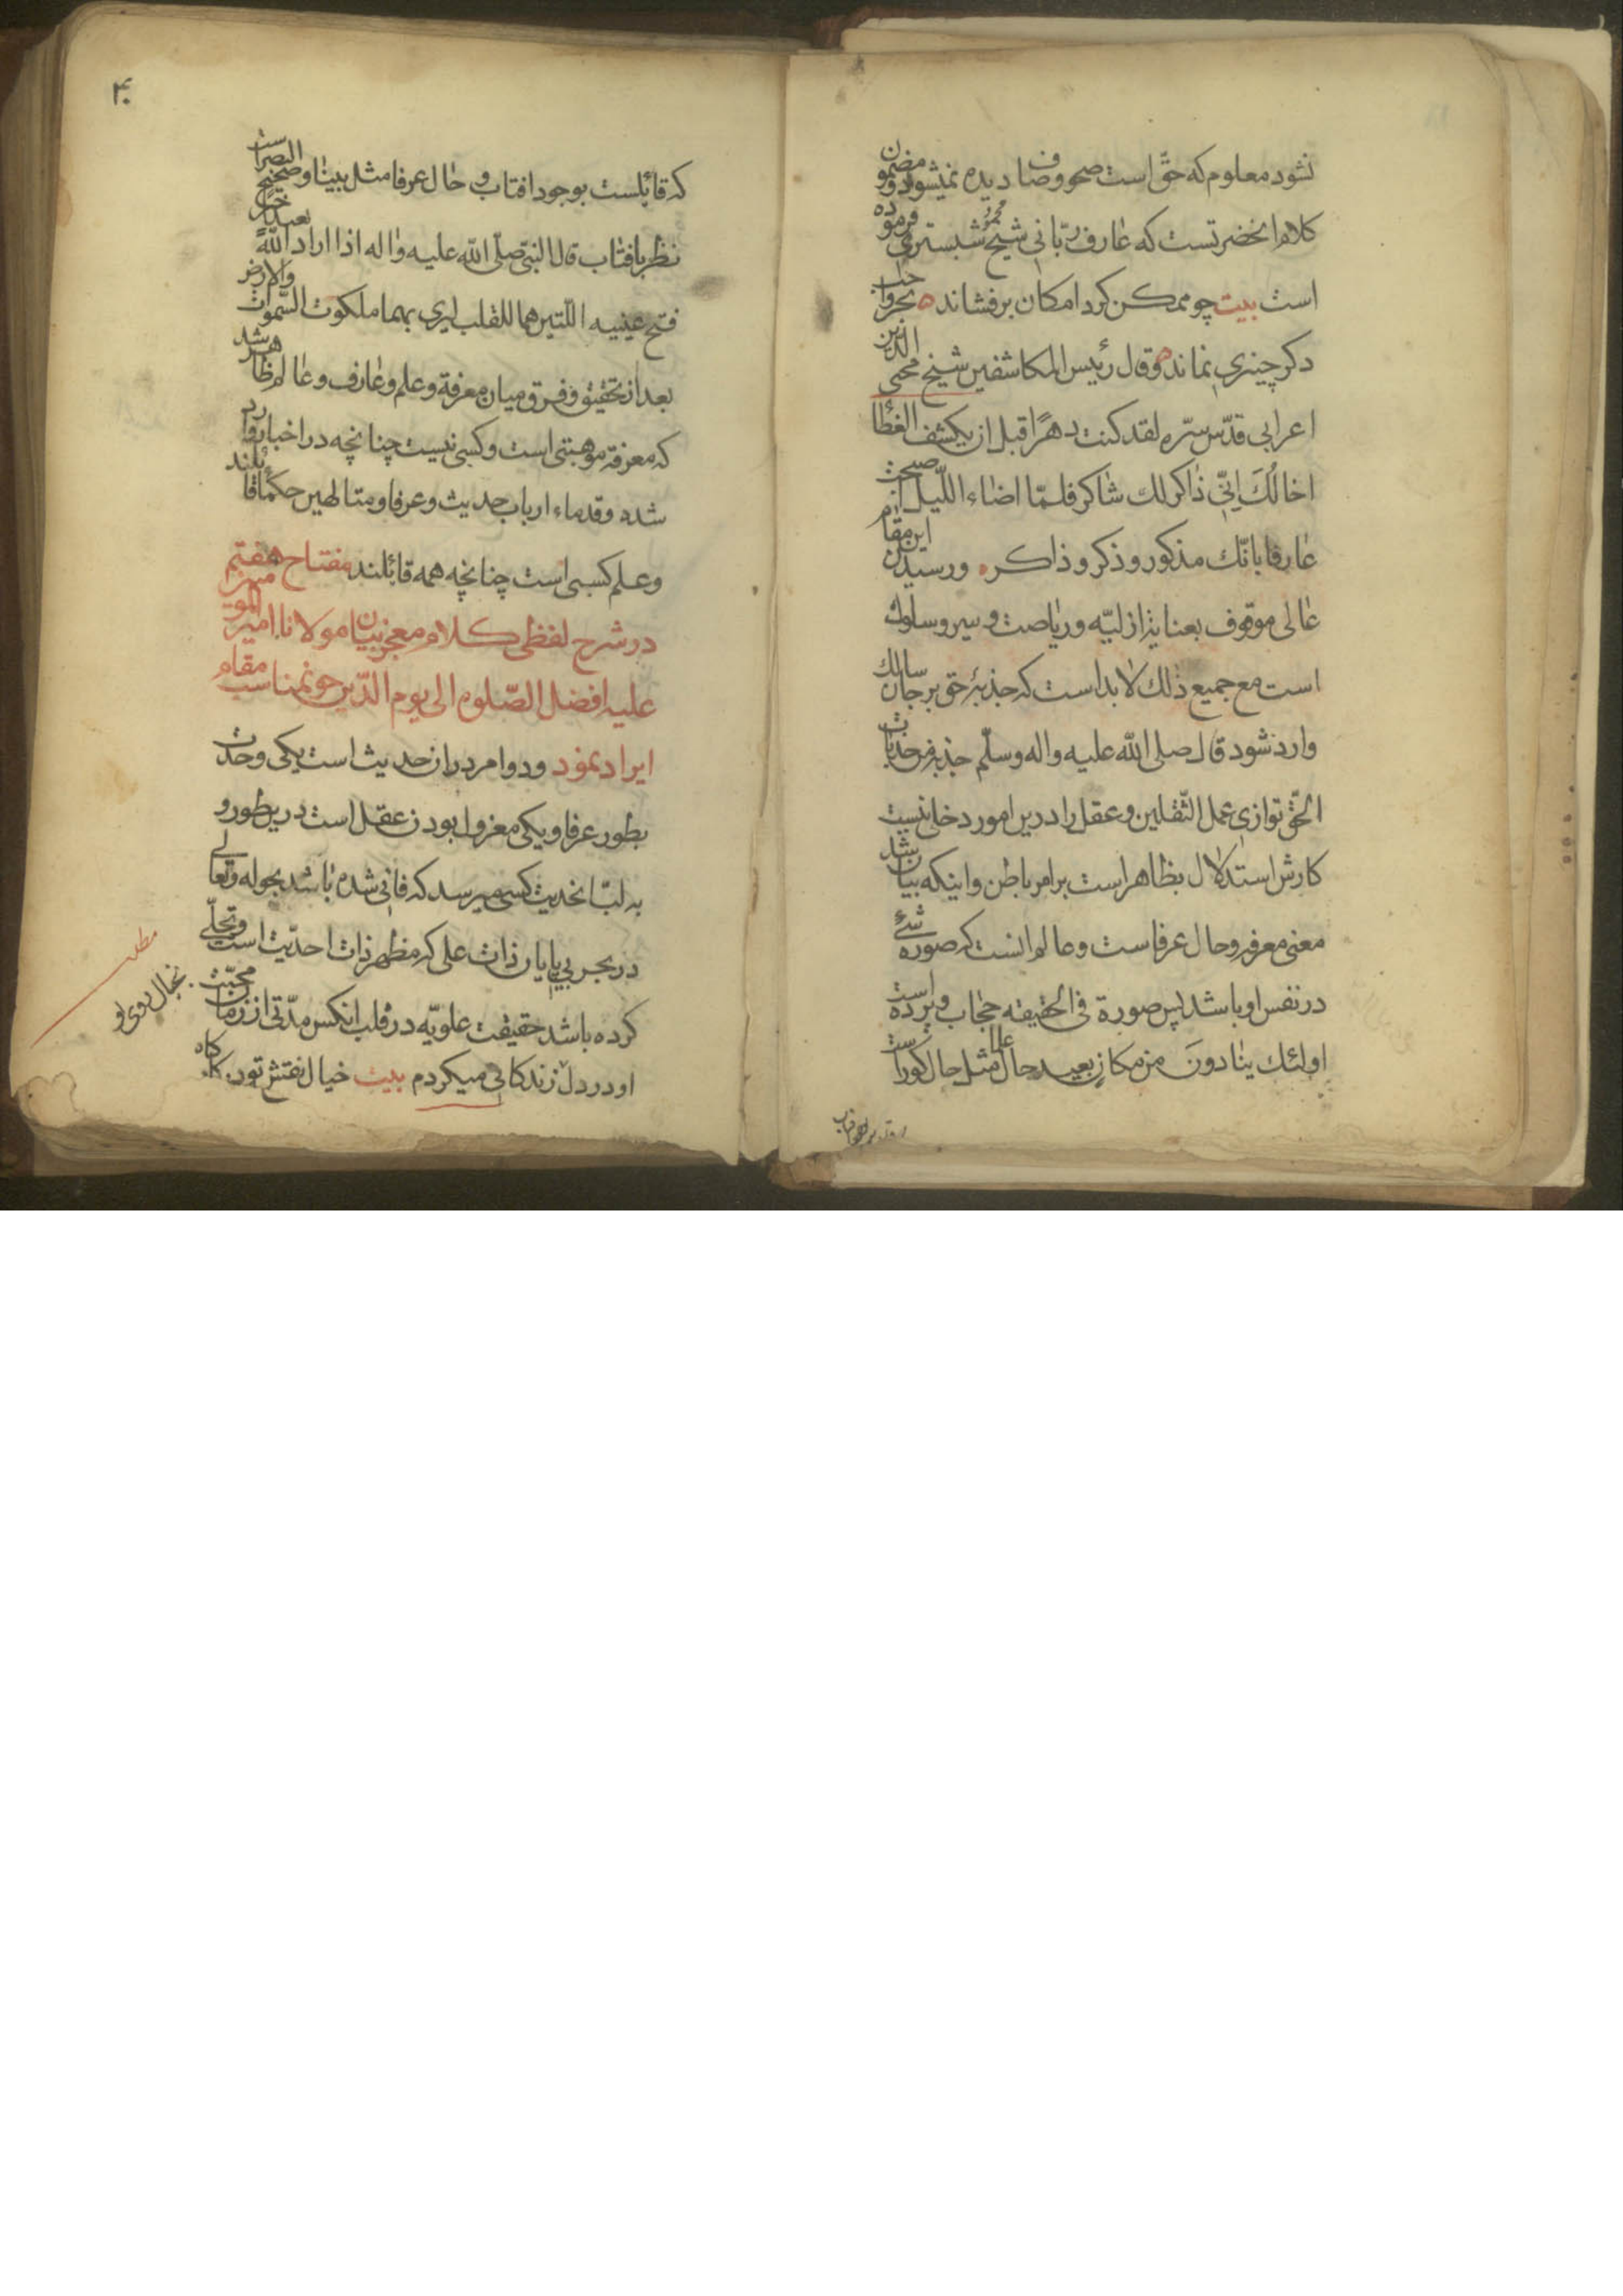 نشود معلوم که حقّ است صحو وضا دیده نمیشود و مضمون
کلام انحضرتست که عارف ربّانی شیخ محمود شبستری فرموده
است بیت چو ممکن کرد امکان برفشاند ه بجز واجب
دکر چیزی نماند ه و قال رئیس المکاشفین شیخ محیی الدین
اعرابی قدّس سرّه لقد کنت دهرًا قبل ان یکشف الغطا
اخالُکَ اِنّی ذاکر لك شاکر فلمّا اضاء اللّیل اصبحت
عارفا بانّك مذکور و ذکر و ذاکر ه و رسیدن این مقام
عالی موقوف بعنایة ازلیّه و ریاضت و سیر و سلوك
است مع جمیع ذلك لابد است که جذبۀ حق بر جان سالك
وارد شود قال صلی اللّه علیه واله وسلّم جذبة من جذبات
الحقّ توازی عمل الثّقلین و عقل را درین امور دخلی نیست
کارش استدلال بظاهر است بر امر باطن و اینکه بیان شد
معنی معرفه و حال عرفاست و عالم انست که صوره شئ
در نفس او باشد پس صورة فی الحقیقه حجاب و پرده است
اولئك ینادون من مکان بعید حال علما مثل حال کور است
۴۰
که قائلست بوجود افتاب و حال عرفا مثل بینا و صحیح البصر است
نظر بافتاب قال النبّی صلّی اللّه علیه واله اذا اراد اللّه بعبد خیرًا
فتح عینیه اللّتین هما للقلب لیری بهما ملکوت السّموات والارض
بعد از تحقیق و فرق میان معرفة و علم و عارف و عالم ظاهر شد
که معرفة موهبتی است و کسبی نیست چنانچه در اخبار وارد
شده و قدماء ارباب حدیث و عرفا و متالهین حکما قائلند
و علم کسبی است چنانچه همه قائلند مفتاح هفتم
در شرح لفظی کلام معجز بیان مولانا امیر المومنین
علیه افضل الصّلوه الی یوم الدّین بر نحو تمناسب مقام
ایراد نمود و دو امر در ان حدیث است یکی وحدت
بطور عرفا و یکی معزول بودن عقل است درین طور و
به لبّ انحدیث کسی میرسد که فانی شده باشد بحوله وتعالی
در بحر بی پایان ذات علی که مظهر ذات احدیّت است و تجلّی
کرده باشد حقیقت علویّه در قلب انکس مدّتی از زمان محبّت
او در دل زندکانی میکردم بیت خیال نقش تو در کارکاه
مطلب
بخیال روی تو